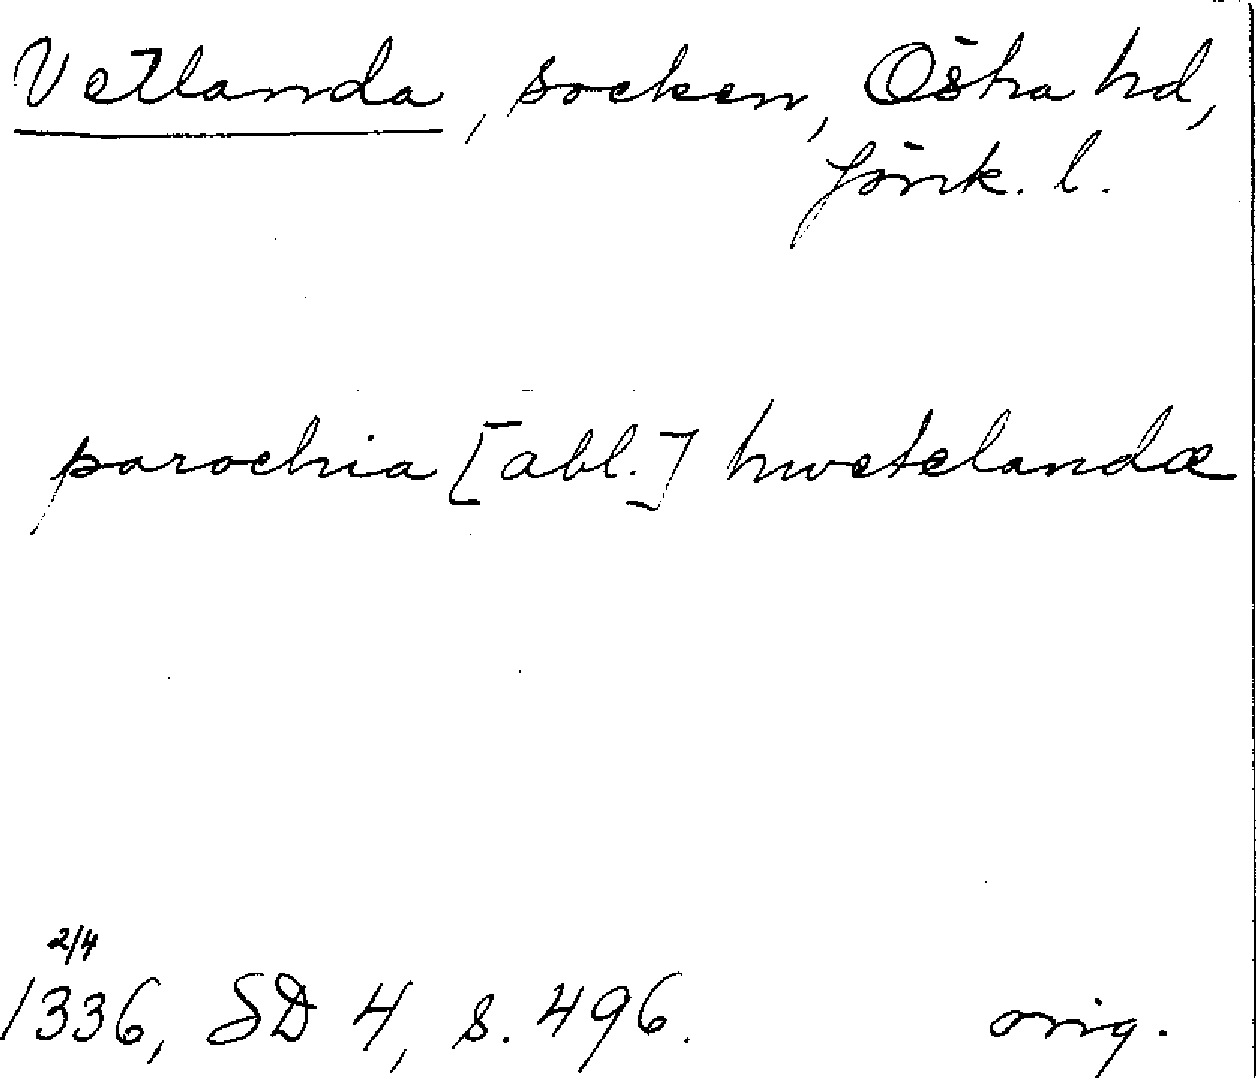 Vetlanda, socken, Östra hd,
Jönk. l.
parochia [abl.] hwetelandæ
2/4
1336, SD 4, s. 496. orig.